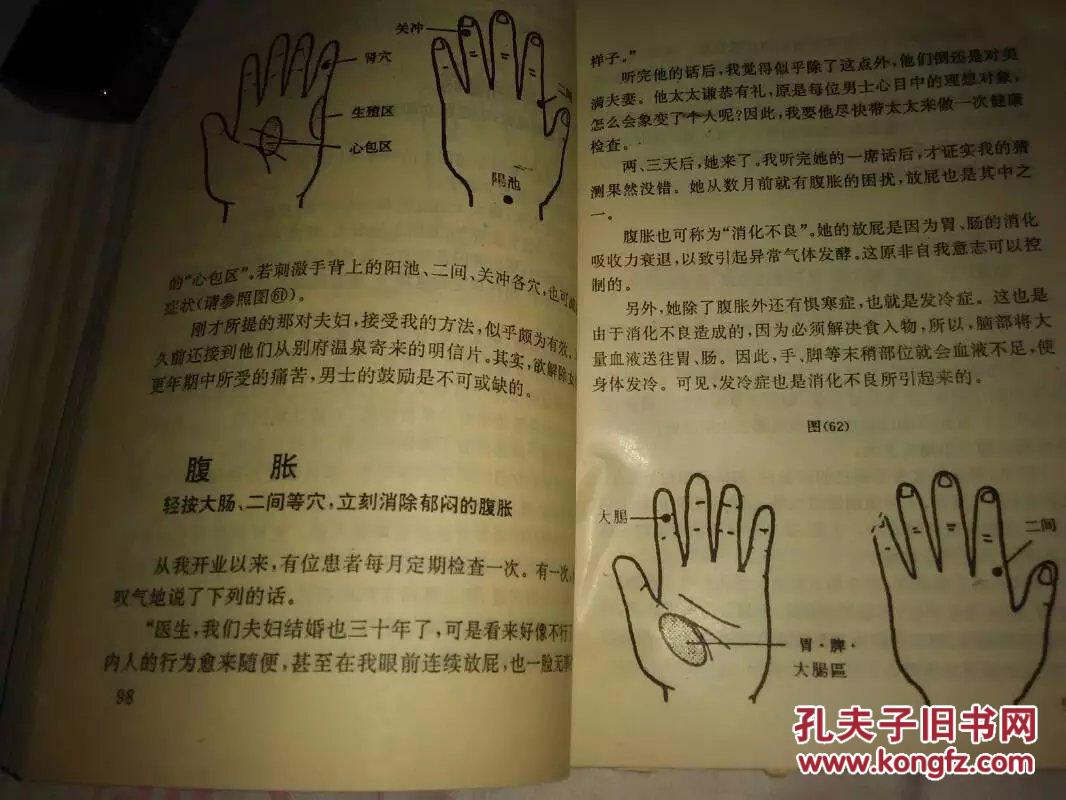 关冲
肾穴
二间
生殖区
心包区
陽池
的“心包区”。若刺激手背上的阳池、二间、关冲各穴，也可
症状(请参照图61)。
刚才所提的那对夫妇，接受我的方法，似乎颇为有效，
久前还接到他们从别府温泉寄来的明信片。其实，欲解除
更年期中所受的痛苦，男士的鼓励是不可或缺的。
腹 胀
轻按大肠、二间等穴，立刻消除郁闷的腹胀
从我开业以来，有位患者每月定期检查一次。有一次，
叹气地说了下列的话。
“医生，我们夫妇结婚也三十年了，可是看来好像不行了
内人的行为愈来随便，甚至在我眼前连续放屁，也一脸无
98
样子。”
听完他的话后，我觉得似乎除了这点外，他们倒还是对美
满夫妻。他太太谦恭有礼，原是每位男士心目中的理想对象，
怎么会象变了个人呢?因此，我要他尽快带太太来做一次健康
检查。
两、三天后，她来了。我听完她的一席话后，才证实我的猜
测果然没错。她从数月前就有腹胀的困扰，放屁也是其中之
一。
腹胀也可称为“消化不良”。她的放屁是因为胃、肠的消化
吸收力衰退，以致引起异常气体发酵。这原非自我意志可以控
制的。
另外，她除了腹胀外还有惧寒症，也就是发冷症。这也是
由于消化不良造成的，因为必须解决食入物，所以，脑部将大
量血液送往胃、肠。因此，手、脚等末稍部位就会血液不足，使
身体发冷。可见，发冷症也是消化不良所引起来的。
图(62)
大腸
二间
胃·脾·
大腸區
孔夫子旧书网
www.kongfz.com